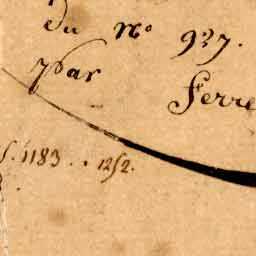 Du No 927.
par Ferre
1183 . . 1252.